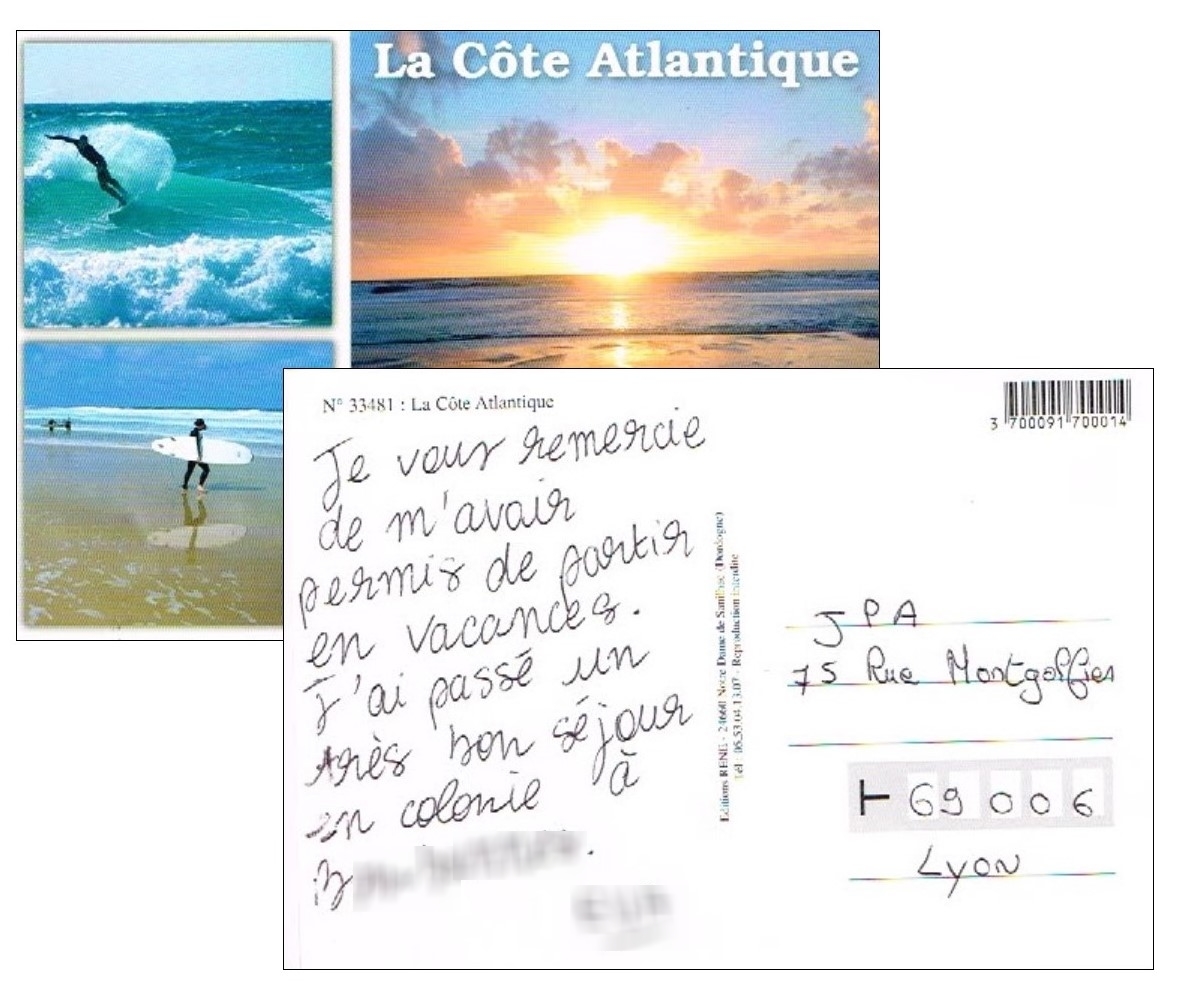 La Côte Atlantique
N° 33481 : La Côte Atlantique
3 700091 700014
Je vous remercie
de m'avoir
permis de partir
en vacances.
J'ai passé un
très bon séjour
en colonie à
Editions RENE - 24660 Notre Dame de Sanilhac (Dordogne)
Tél : 06.53.04.13.07 - Reproduction interdite
JPA
75 Rue Montgolfier
69006
Lyon